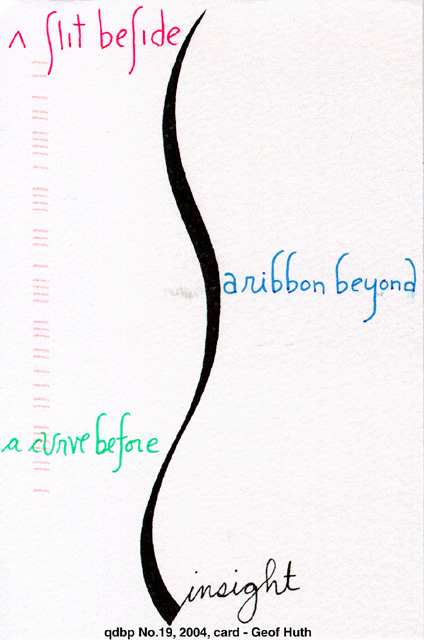 A slit beside
a ribbon beyond
a curve before
insight
qdbp No.19, 2004, card - Geof Huth